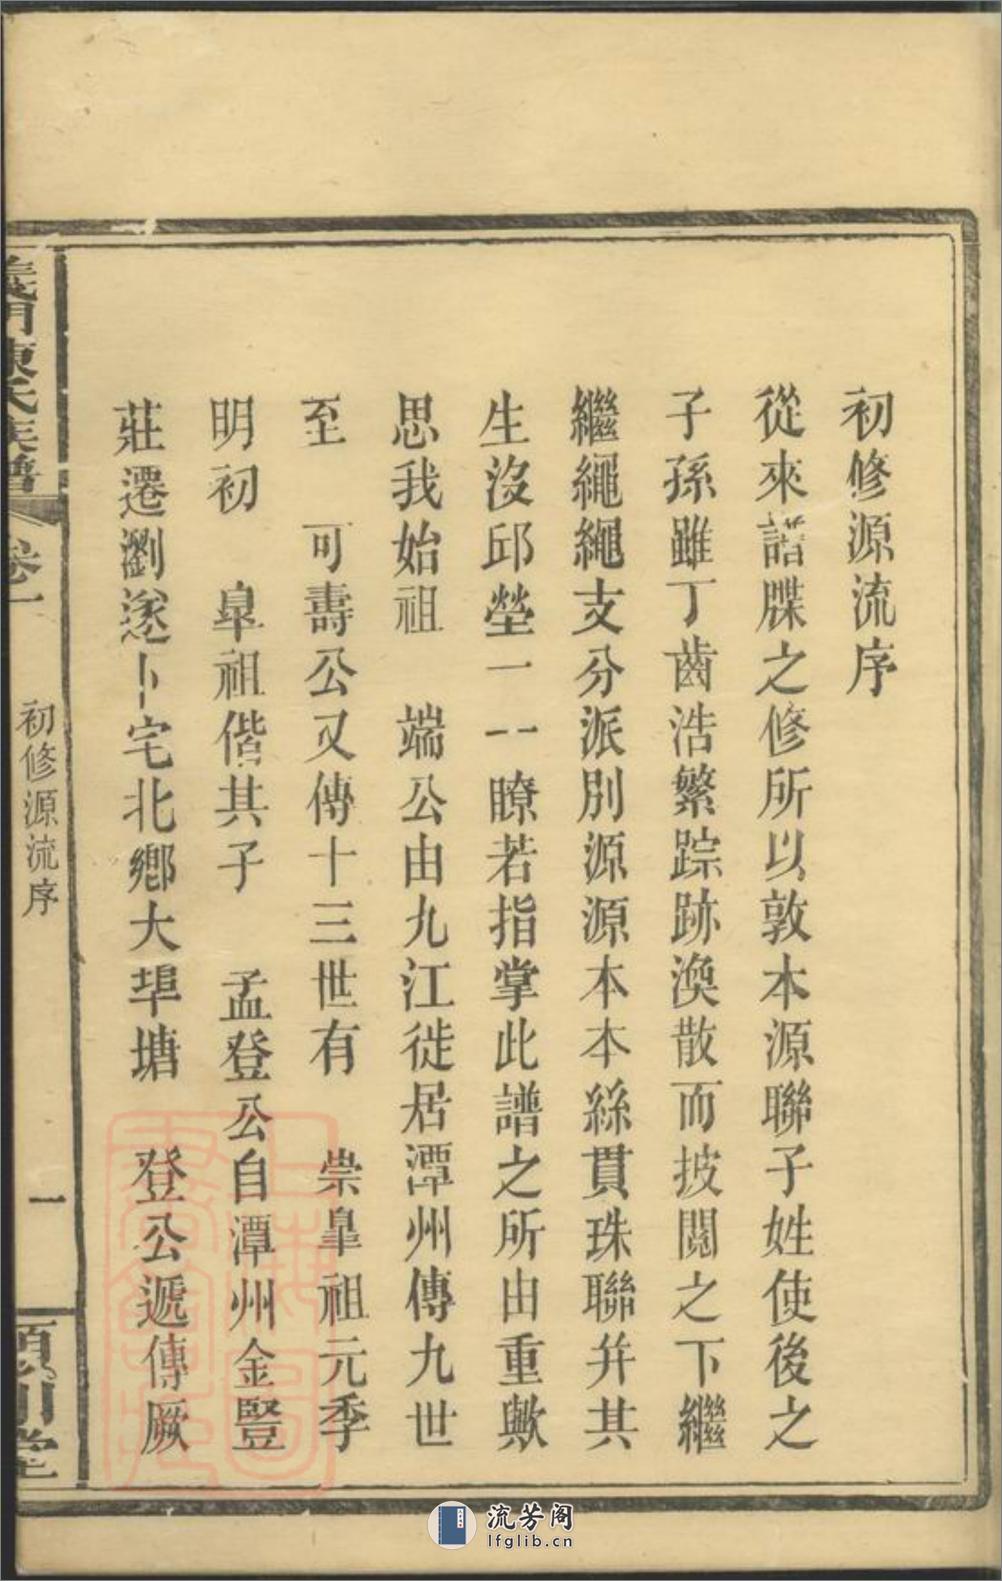 初修源流序
從來譜牒之修所以敦本源聯子姓使後之
子孫雖丁齒浩繁踪跡渙散而披閱之下繼
繼繩繩支分派別源源本本絲貫珠聯并其
生沒邱塋一一瞭若指掌此譜之所由重歟
思我始祖 端公由九江徙居潭州傳九世
至 可壽公又傳十三世有 崇皐祖元季
明初 皐祖偕其子 孟登公自潭州金豎
莊遷瀏遂卜宅北鄉大埠塘 登公遞傳厥
義門陳氏族譜
卷一
初修源流序
一
潁川堂
上海圖書館藏
流芳阁
lfglib.cn